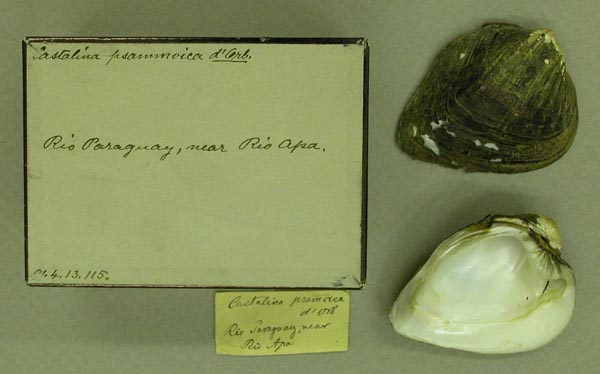 Castalina psammoica d'Orb.
Rio Paraguay, near Rio Apa.
91.4.13.115.
Castalina psamoica
d'Orb
Rio Paraguay, near
Rio Apa